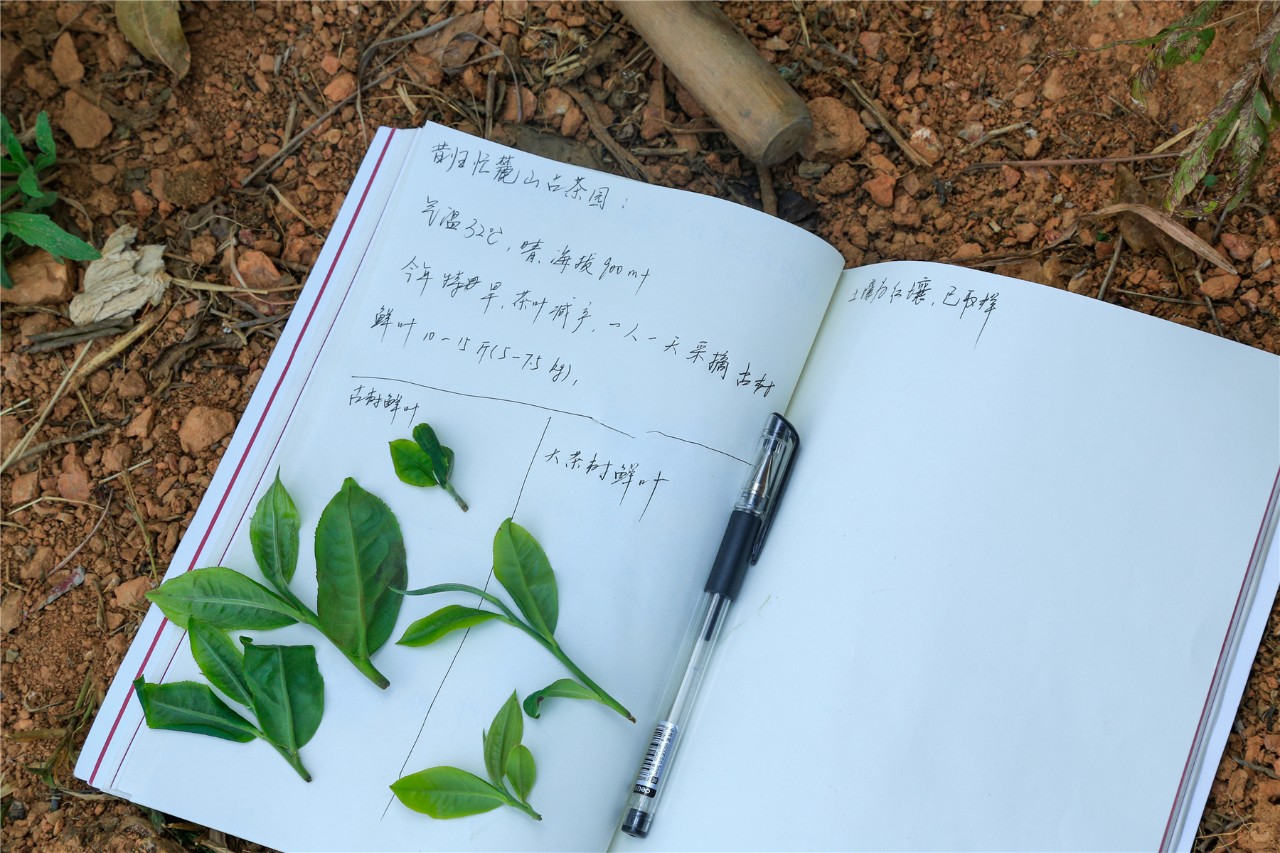 昔归忙麓山古茶园：
气温32℃，晴，海拔900m+
今年特母旱，茶叶减产，一人一天采摘古树
鲜叶10-15斤(5-7.5kg)，
古树鲜叶
大茶树鲜叶
土壤为红壤，已取样
deli